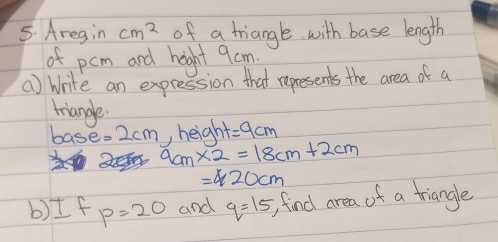 5. Aregin cm² of a triangle with base length
of pcm and height 9cm.
a) Write an expression that represents the area of a
triangle.
base=2cm, height=9cm
9cm×2 = 18cm +2cm
=20cm
b) If p=20 and q=15, find area of a triangle